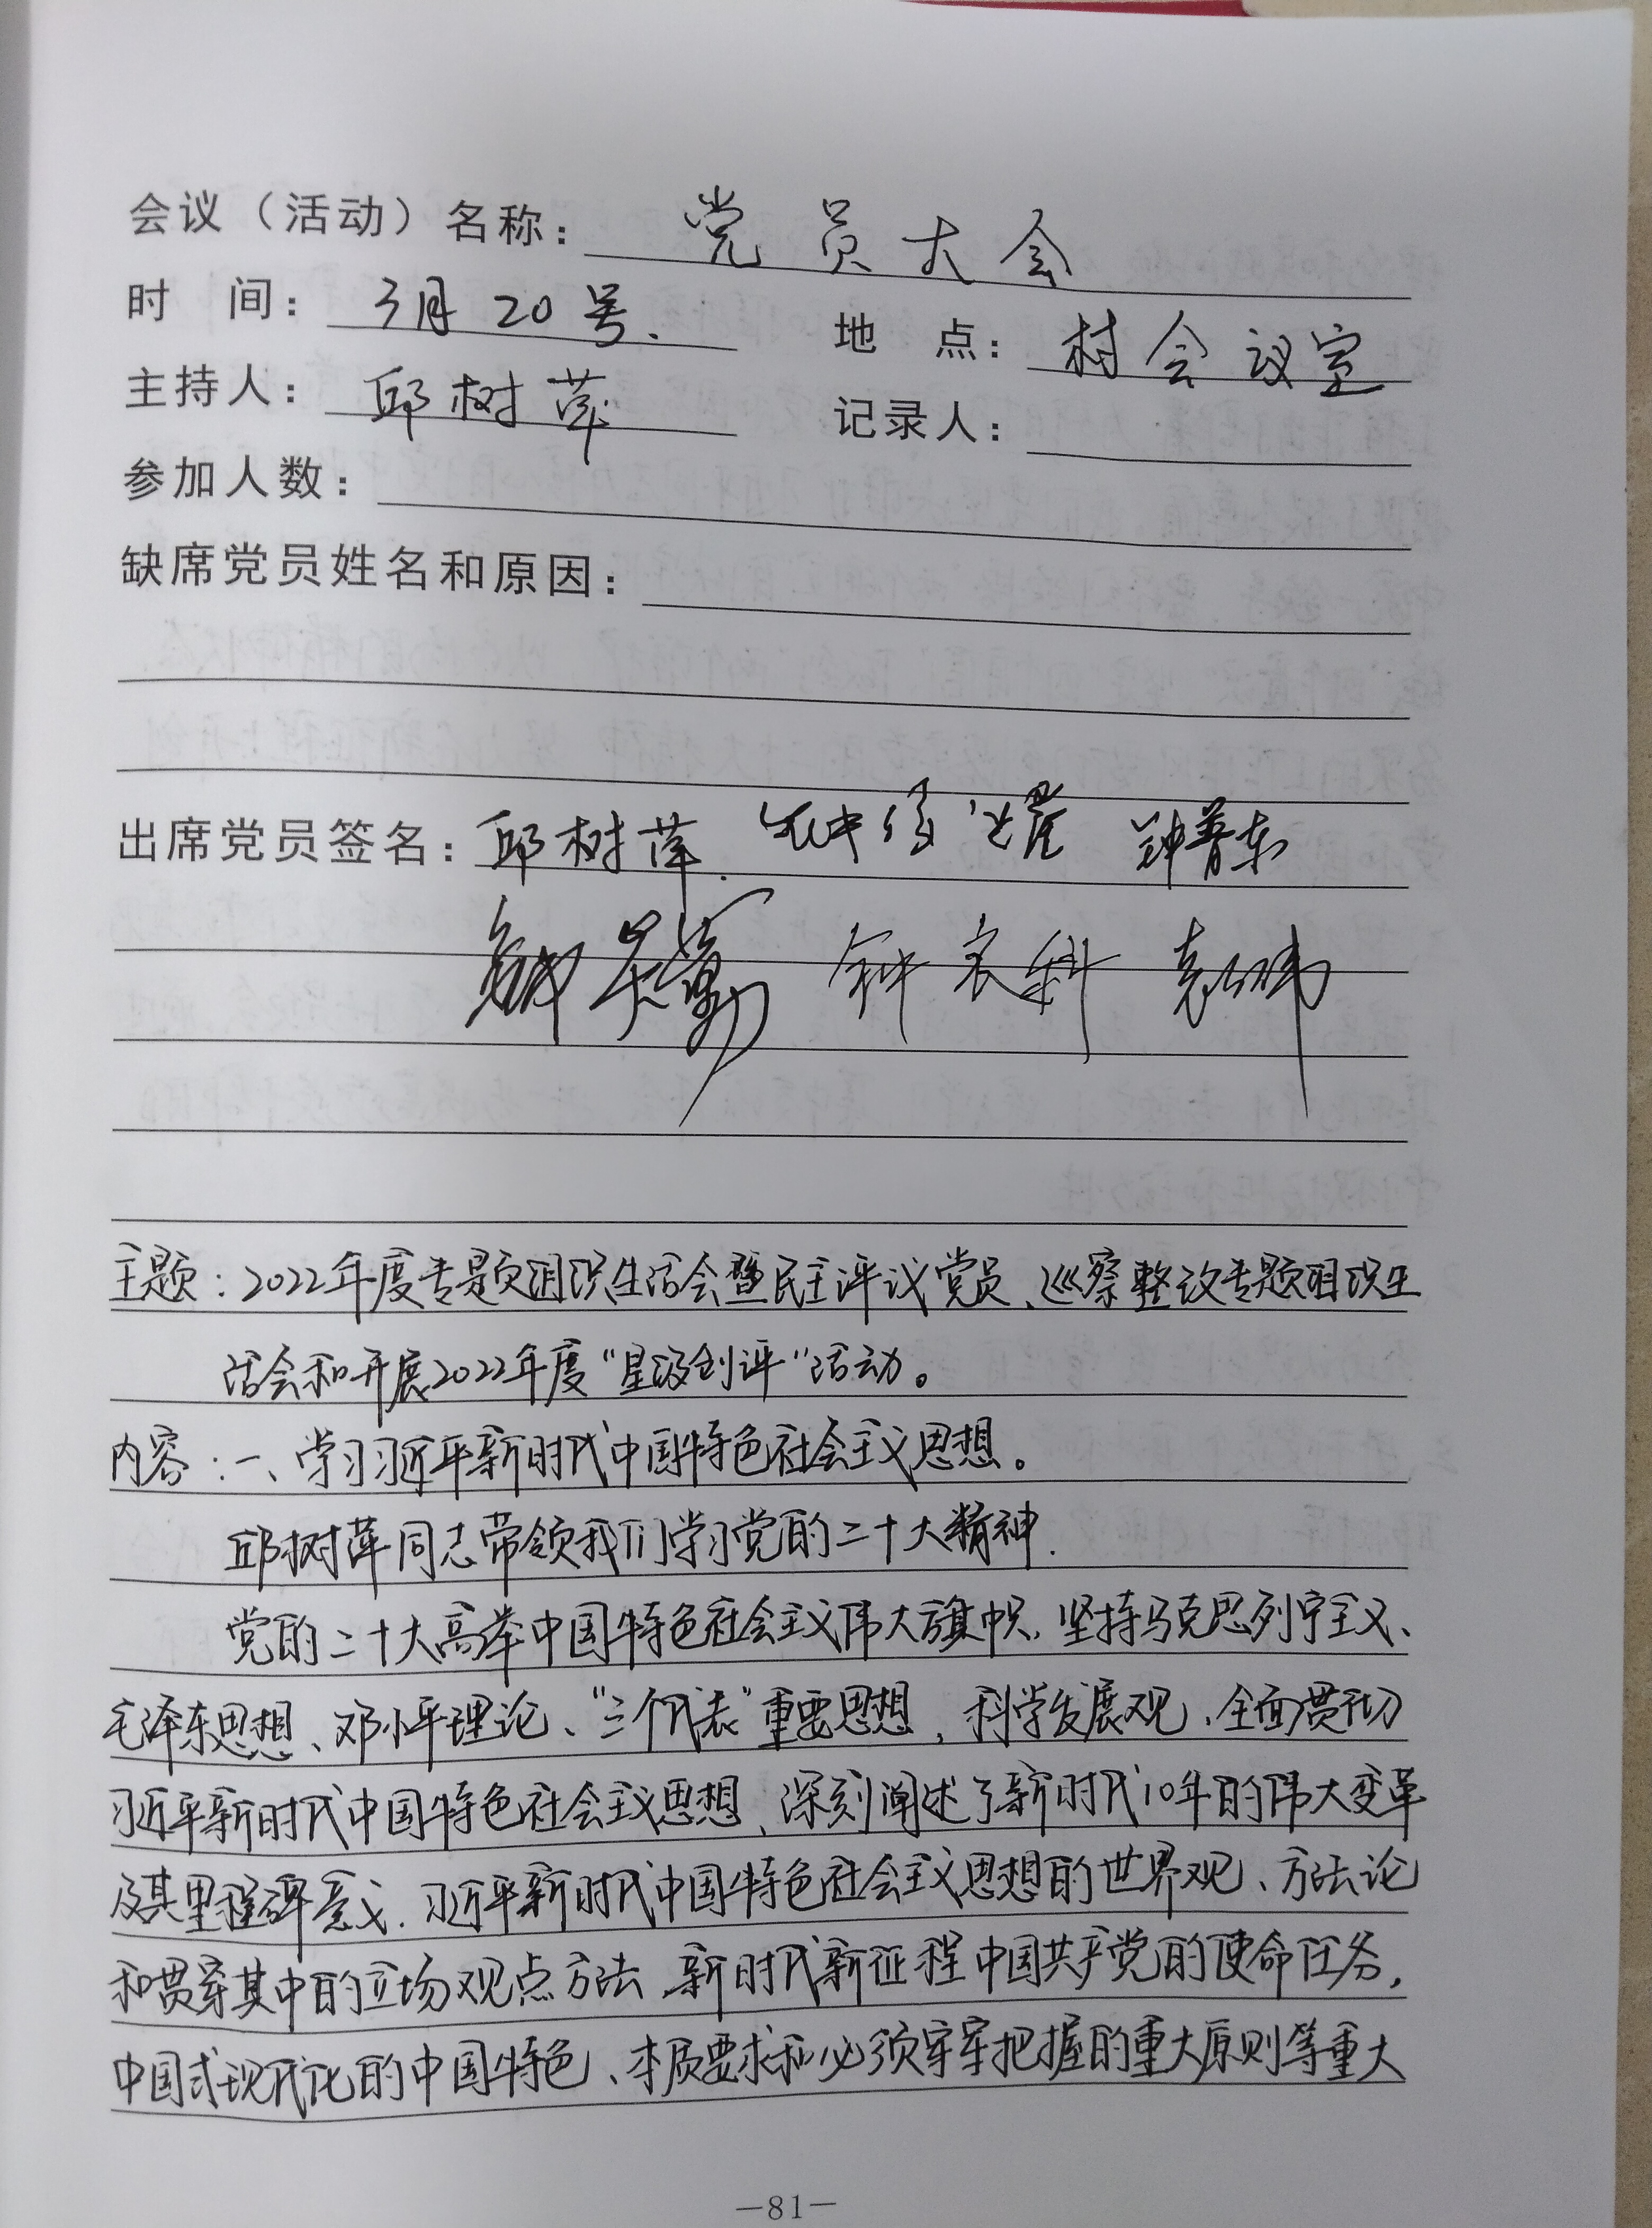 会议（活动）名称：党员大会
时 间：3月20号. 地 点：村会议室
主持人：邱树萍 记录人：
参加人数：
缺席党员姓名和原因：
出席党员签名：邱树萍.
主题：2022年度专题组织生活会暨民主评议党员、巡察整改专题组织生
活会和开展2022年度“星级创评”活动。
内容：一、学习习近平新时代中国特色社会主义思想。
邱树萍同志带领我们学习党的二十大精神.
党的二十大高举中国特色社会主义伟大旗帜，坚持马克思列宁主义、
毛泽东思想、邓小平理论、“三个代表”重要思想，科学发展观、全面贯彻
习近平新时代中国特色社会主义思想，深刻阐述了新时代10年的伟大变革
及其里程碑意义．习近平新时代中国特色社会主义思想的世界观、方法论
和贯穿其中的立场观点方法，新时代新征程中国共产党的使命任务，
中国式现代化的中国特色、本质要求和必须牢牢把握的重大原则等重大
—81—